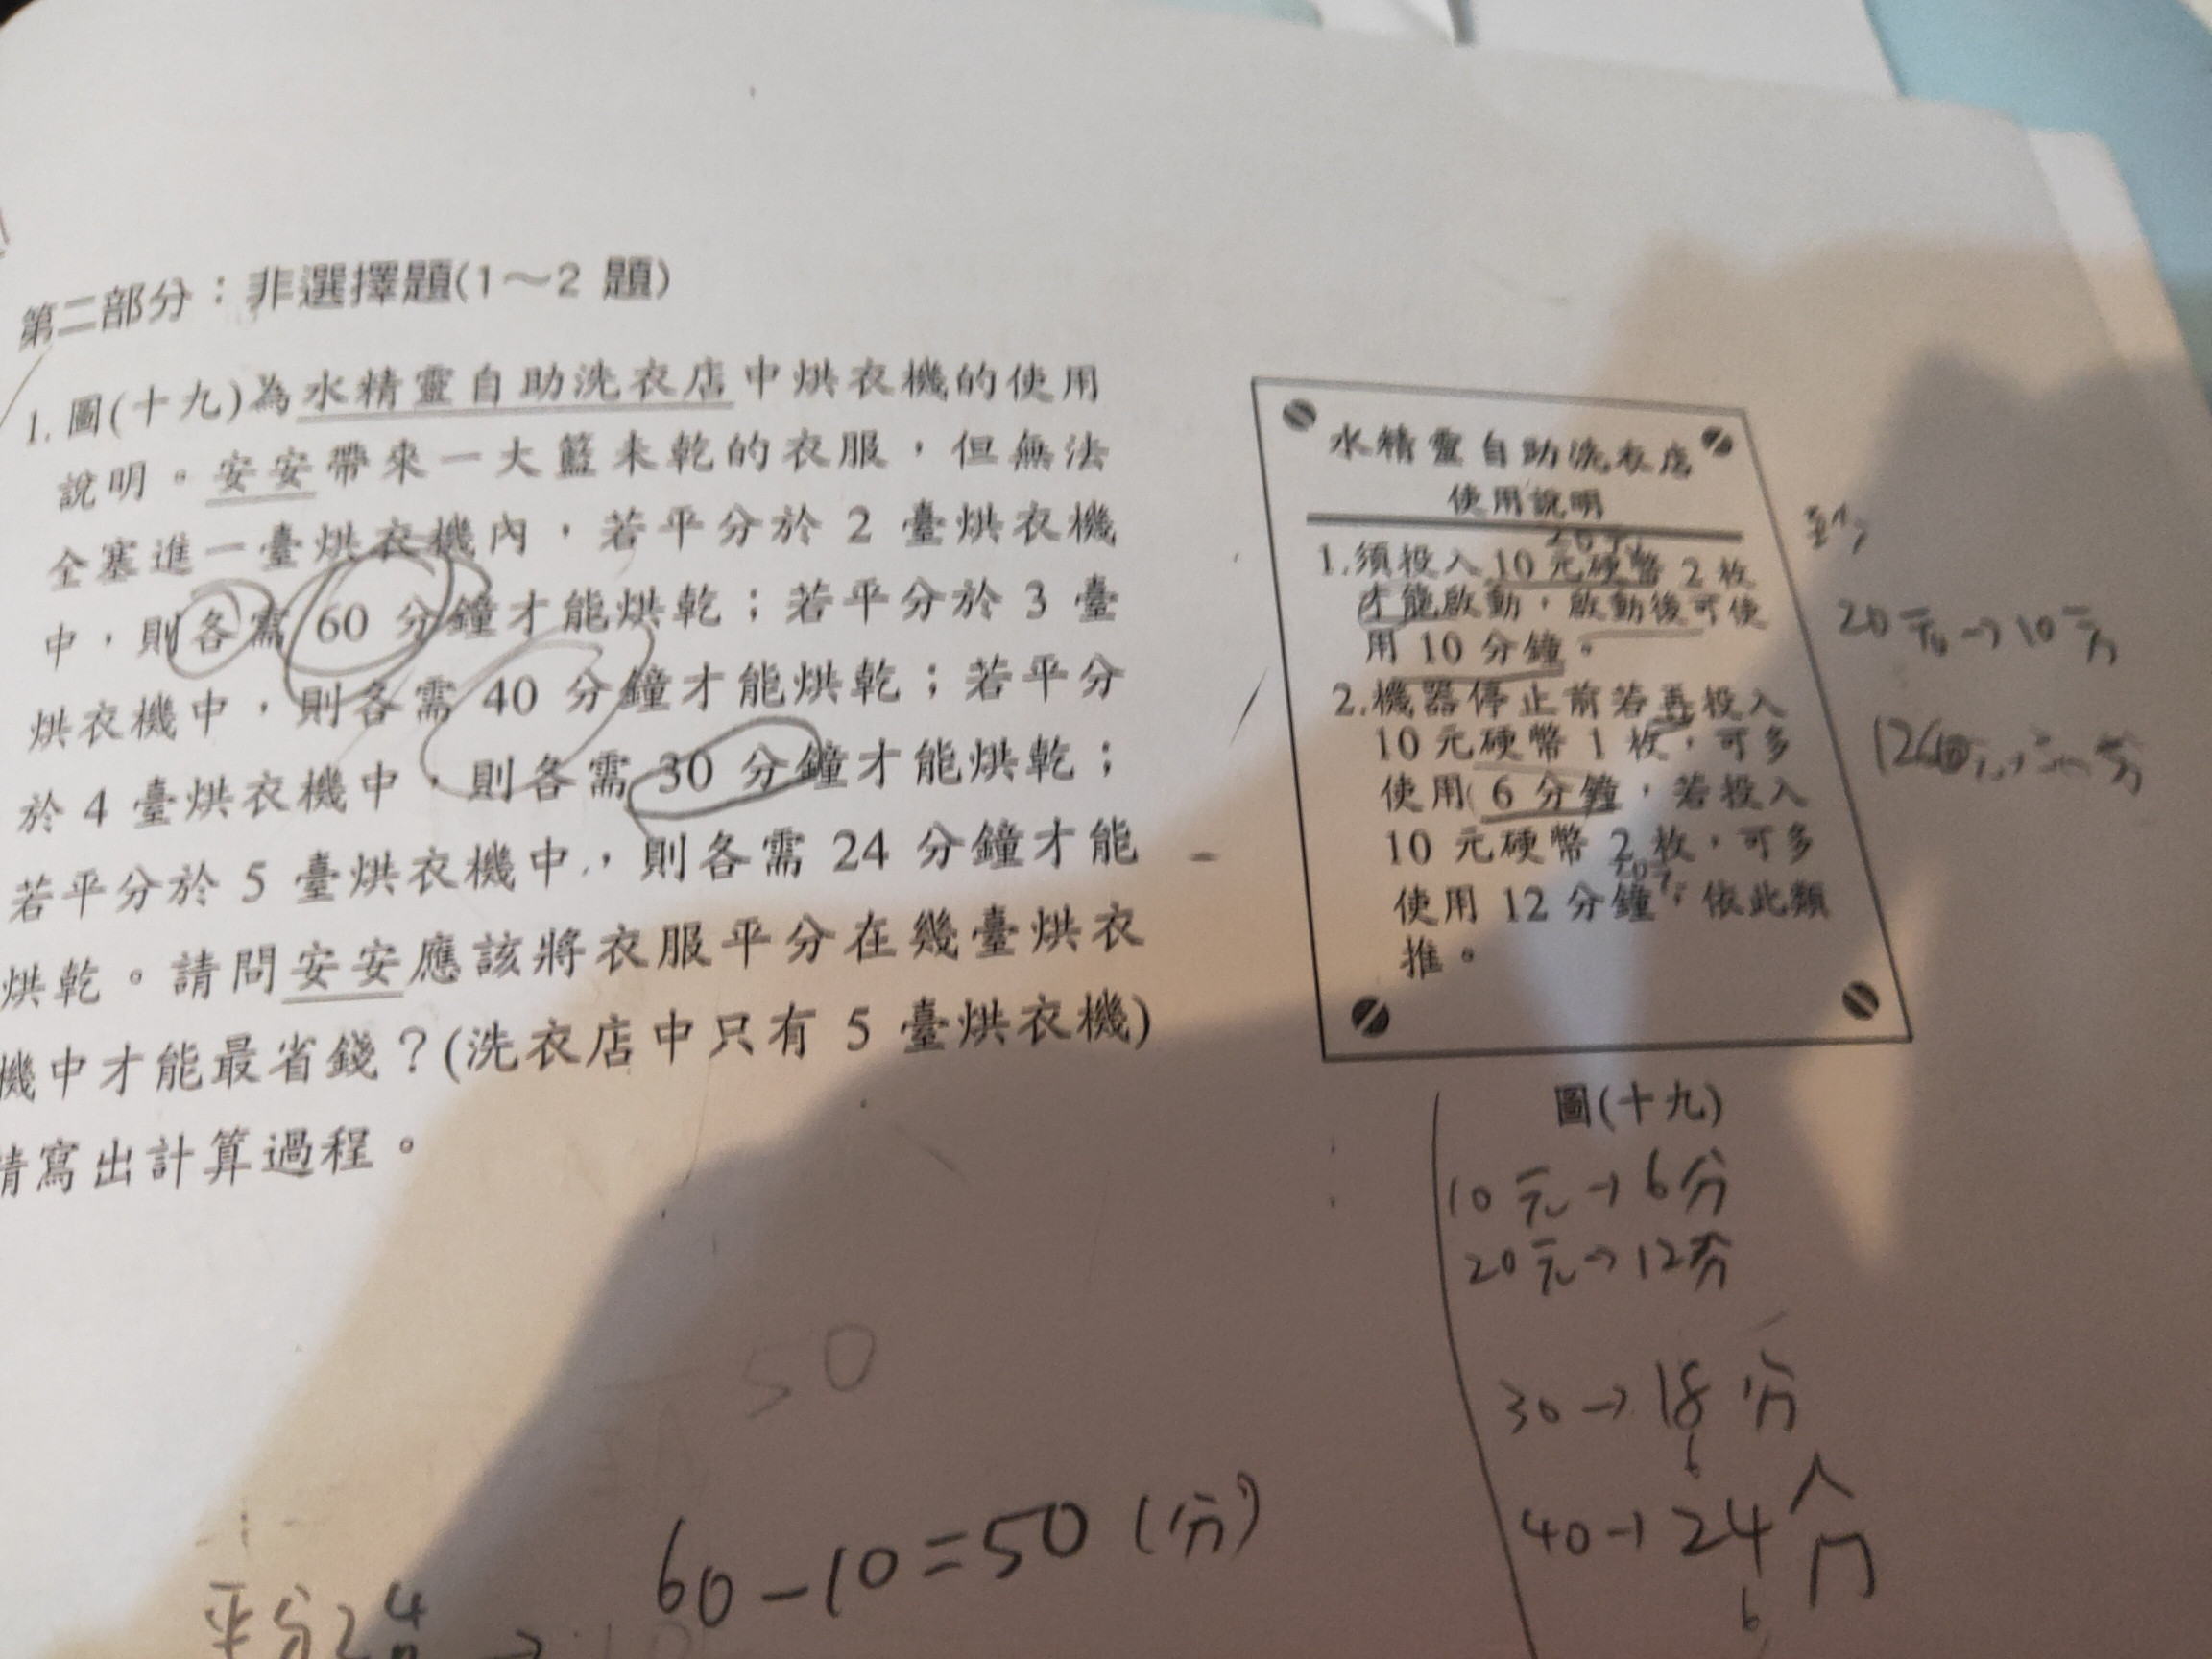 第二部分：非選擇題(1～2 題)
1. 圖(十九)為水精靈自助洗衣店中烘衣機的使用
說明。安安帶來一大籃未乾的衣服，但無法
全塞進一臺烘衣機內，若平分於 2 臺烘衣機
中，則各需 60 分鐘才能烘乾；若平分於 3 臺
烘衣機中，則各需 40 分鐘才能烘乾；若平分
於 4 臺烘衣機中，則各需 30 分鐘才能烘乾；
若平分於 5 臺烘衣機中，則各需 24 分鐘才能
烘乾。請問安安應該將衣服平分在幾臺烘衣
機中才能最省錢？(洗衣店中只有 5 臺烘衣機)
請寫出計算過程。
水精靈自助洗衣店
使用說明
20元
1.須投入 10 元硬幣 2 枚
才能啟動，啟動後可使
用 10 分鐘。
2.機器停止前若再投入
10 元硬幣 1 枚，可多
使用 6 分鐘，若投入
10 元硬幣 2 枚，可多
20元
使用 12 分鐘，依此類
推。
圖(十九)
20元→10分
10元→6分
20元→12分
30→18分
6
40→24
6
50
60-10=50(分)
平分2